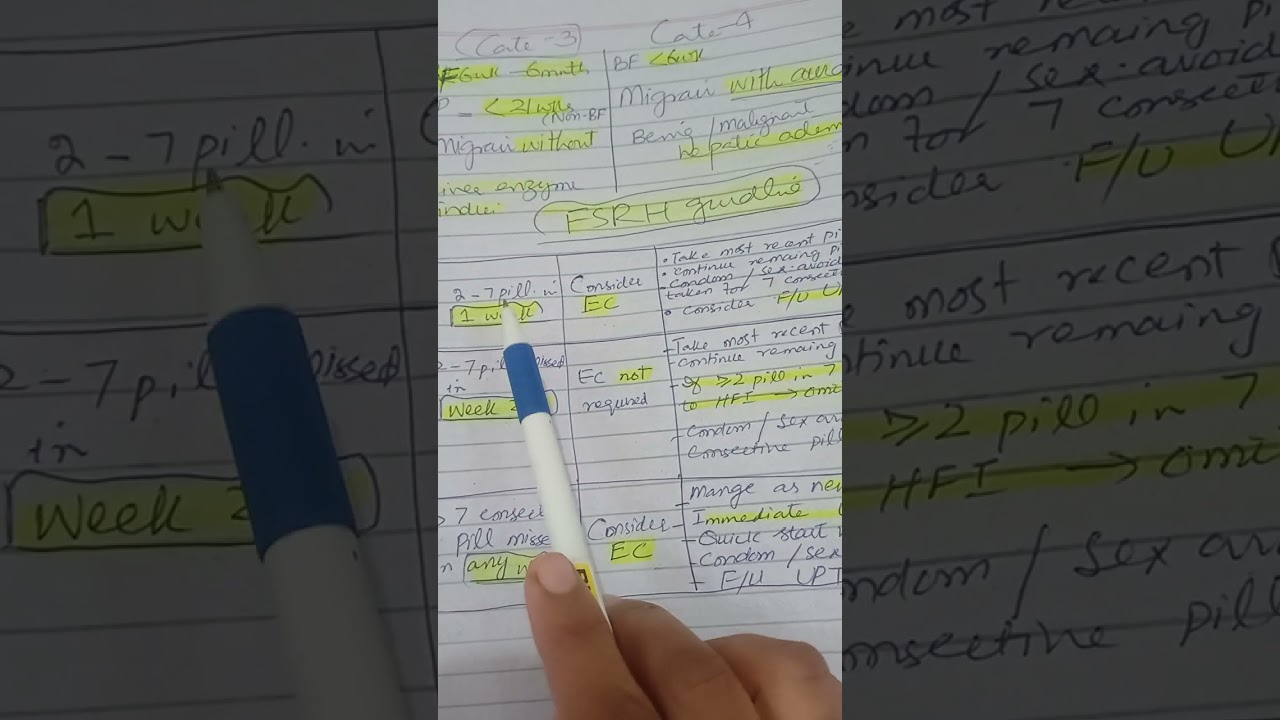 Cate-3
Cate-4
6wk - 6month
BF <6wk
< 21 wks
(Non-BF
Migrain with aura
Migrain without
Benig / malignant
hepatic adem
liver enzyme
FSRH guidline
2 - 7 pill in
1 week
Consider
EC
• Take most recent pi
• continue remaing pi
- Condom / sex avoid
taken for 7 consect
• Consider F/U U
2 - 7 pill missed
in
Week 2
EC not
required
- Take most recent
- continue remaing
- If ≥2 pill in 7
to HFI → omi
- Condom / sex av
Consective pill
> 7 consec
Pill misse
in any w
Consider
EC
Mange as ne
- Immediate
- Quick start
- Condom / sex
- F/U UPT